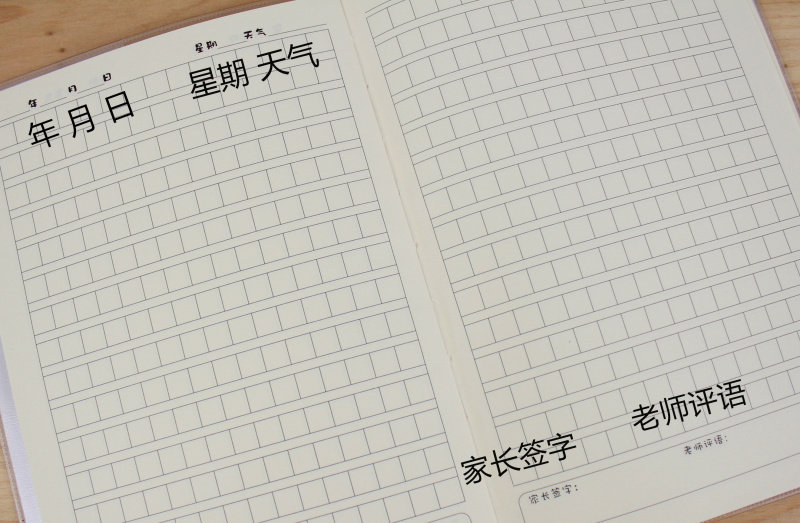 年 月 日 星期 天气
年 月 日 星期 天气
老师评语
家长签字
老师评语:
家长签字: